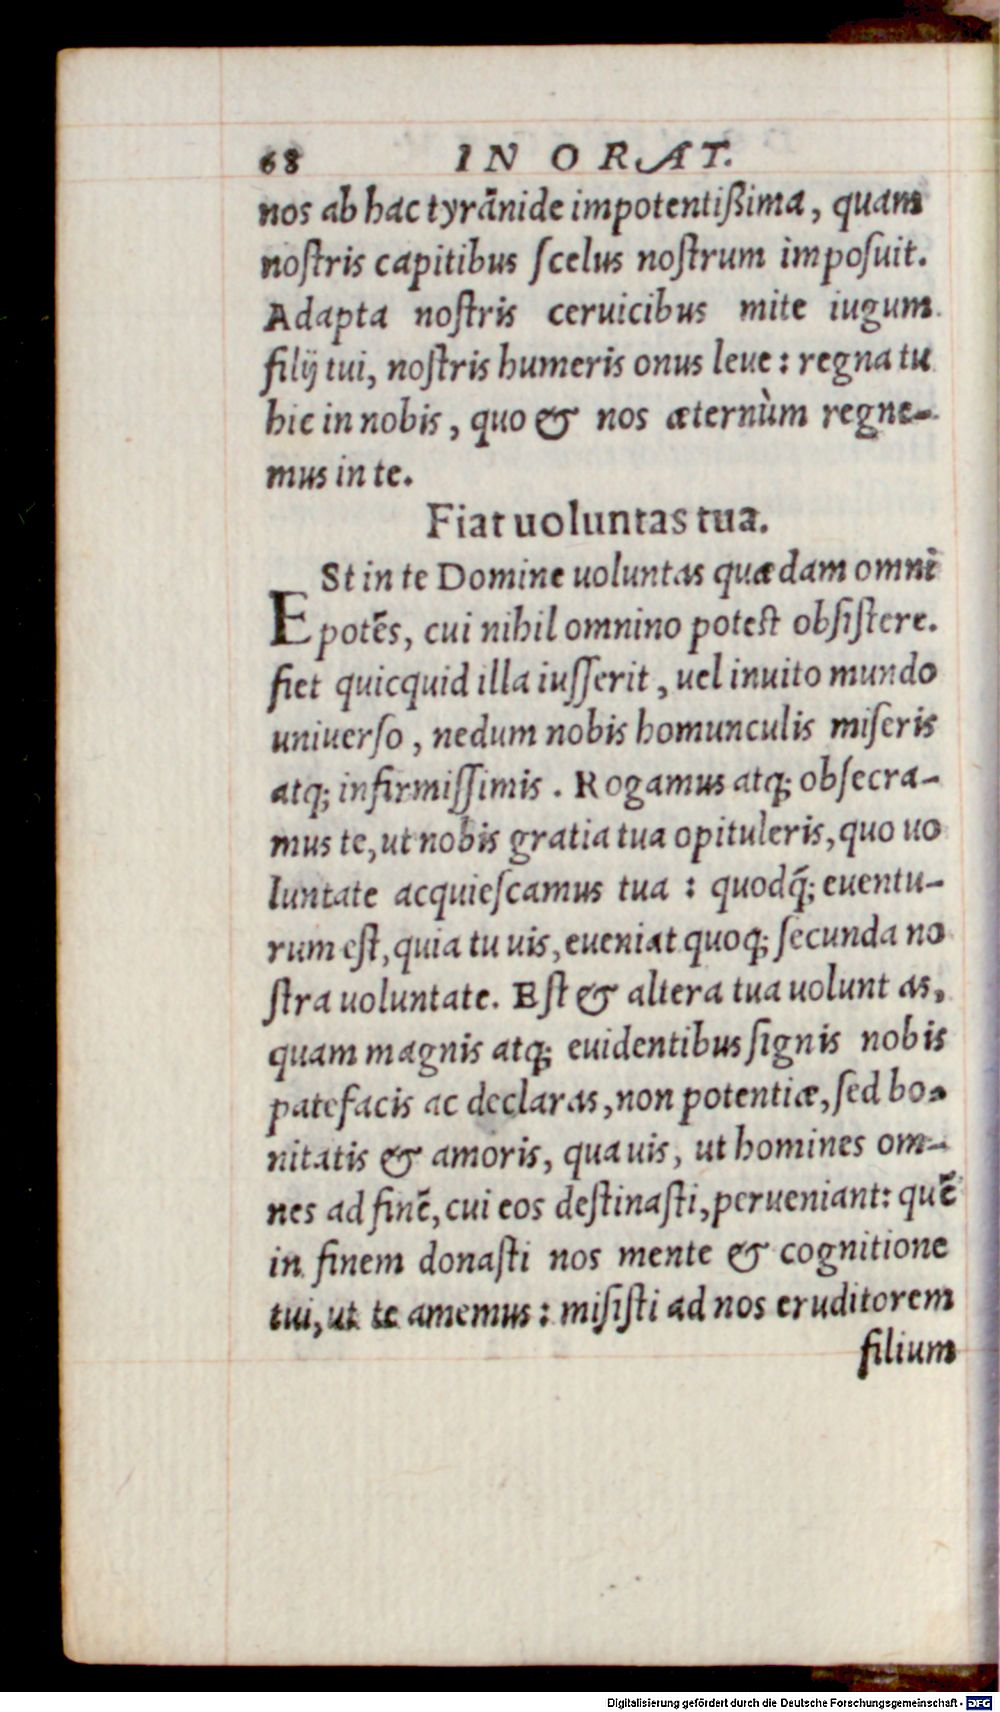 68 IN ORAT.
nos ab hac tyrānide impotentißima, quam
noſtris capitibus ſcelus noſtrum impoſuit.
Adapta noſtris ceruicibus mite iugum
filij tui, noſtris humeris onus leue: regna tu
hic in nobis, quo & nos æternùm regne-
mus in te.
Fiat uoluntas tua.
ESt in te Domine uoluntas quædam omni
potēs, cui nihil omnino poteſt obſiſtere.
fiet quicquid illa iuſſerit, uel inuito mundo
uniuerſo, nedum nobis homunculis miſeris
atq; infirmiſſimis. Rogamus atq; obſecra-
mus te, ut nobis gratia tua opituleris, quo uo
luntate acquieſcamus tua: quodq́; euentu-
rum eſt, quia tu uis, eueniat quoq; ſecunda no
ſtra uoluntate. Eſt & altera tua uolunt as,
quam magnis atq; euidentibus ſignis nobis
patefacis ac declaras, non potentiæ, ſed bo-
nitatis & amoris, qua uis, ut homines om-
nes ad finē, cui eos deſtinaſti, perueniant: quē
in finem donaſti nos mente & cognitione
tui, ut te amemus: miſiſti ad nos eruditorem
filium
Digitalisierung gefördert durch die Deutsche Forschungsgemeinschaft - DFG